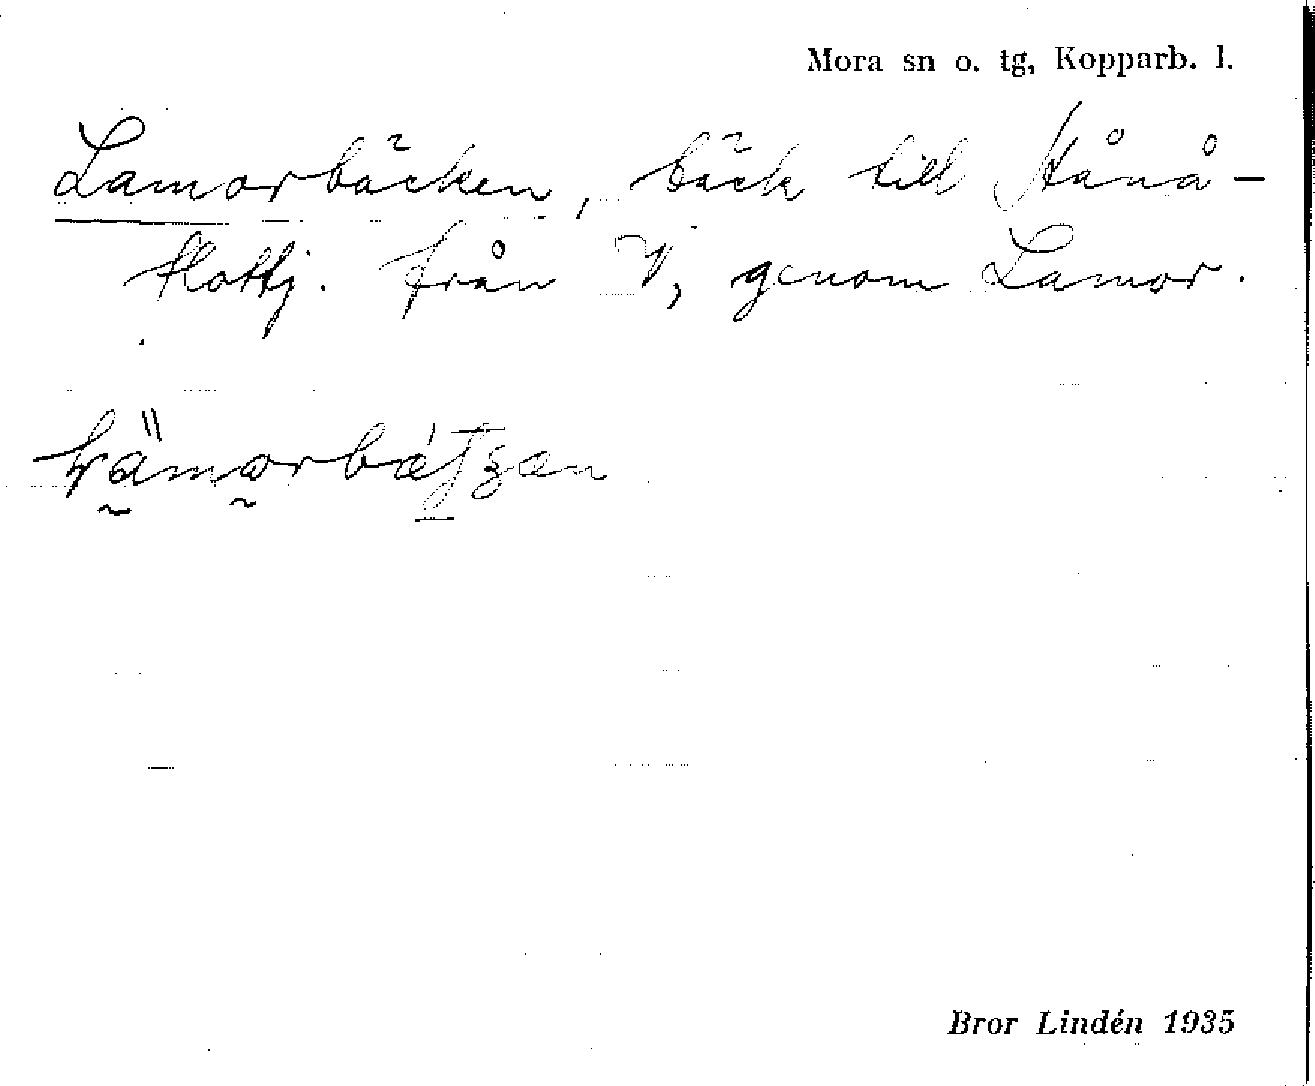 Mora sn o. tg, Kopparb. l.
Lamorbäcken, bäck till Hånå-
flottj. från V, genom Lamor.
Bror Lindén 1935